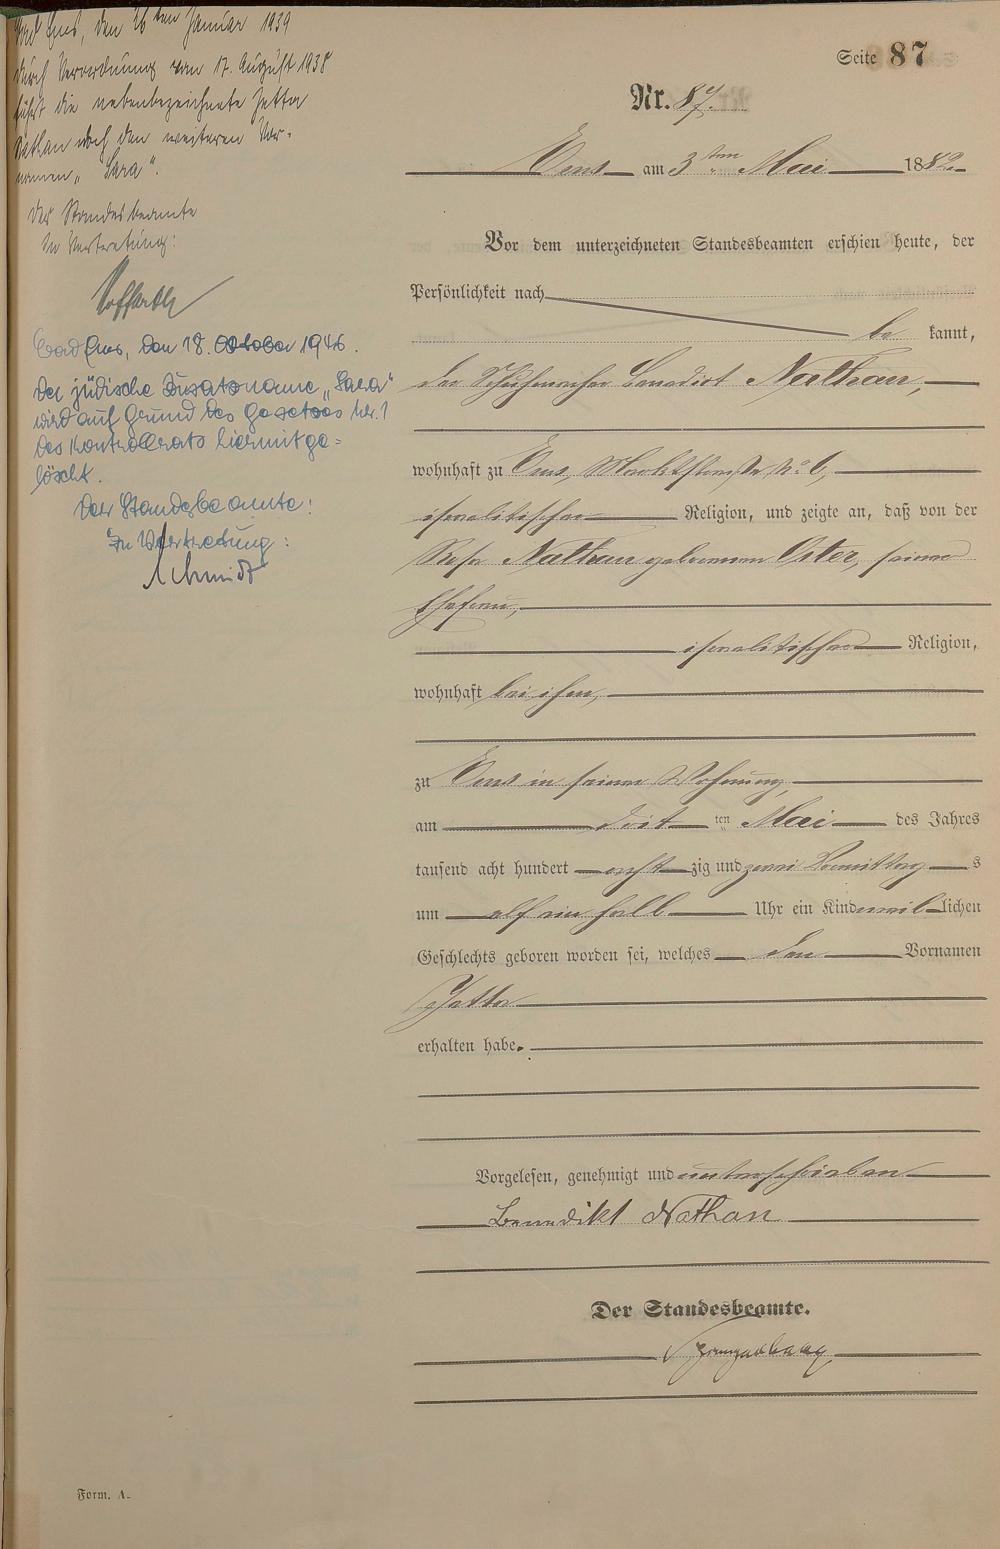 Bad Ems, den 26ten Januar 1939
durch Verordnung vom 17. August 1938
führt die nebenbezeichnete Jetta
Nathan noch den weiteren Vor-
namen „Sara“.
Der Standesbeamte
In Vertretung:
Bad Ems, den 18. Oktober 1946.
Der jüdische Zusatzname „Sara“
wird auf Grund des Gesetzes Nr. 1
des Kontrollrats hiermit ge=
löscht.
Der Standesbeamte:
In Vertretung:
Schmidt
Seite 87
Nr. 87.
Ems am 3ten Mai 1882
Vor dem unterzeichneten Standesbeamten erschien heute, der
Persönlichkeit nach
be kannt,
der Schuhmacher Benedict Nathan,
wohnhaft zu Ems, Marktstraße No 6,
israelitischer Religion, und zeigte an, daß von der
Rosa Nathan geborenen Oster, seiner
Ehefrau,
israelitischer Religion,
wohnhaft bei ihm,
zu Ems in seiner Wohnung,
am dritten Mai des Jahres
tausend acht hundert acht zig und zwei Vormittag s
um elf ein halb Uhr ein Kind weib lichen
Geschlechts geboren worden sei, welches den Vornamen
Jetta
erhalten habe.
Vorgelesen, genehmigt und unterschrieben
Benedikt Nathan
Der Standesbeamte.
Form. A.